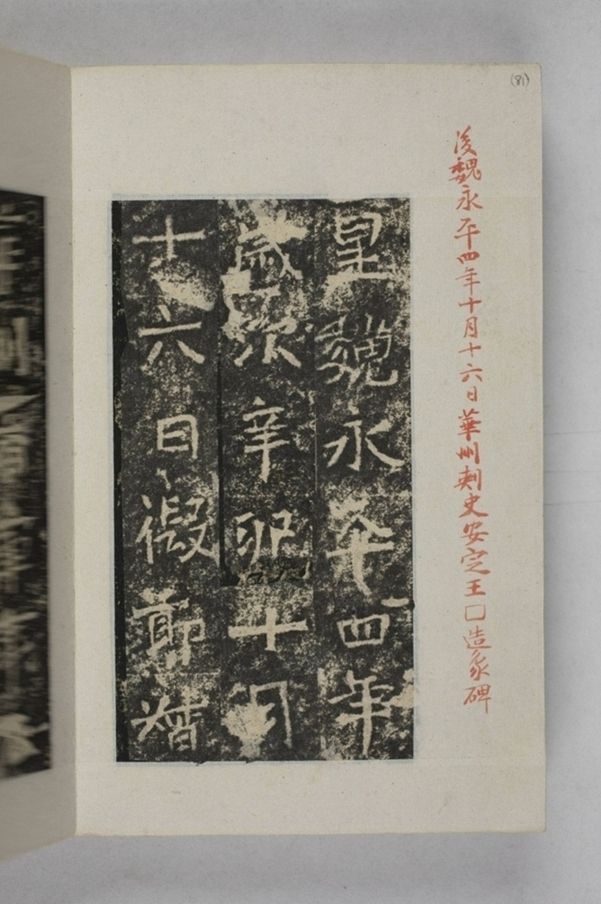 (81)
後魏永平四年十月十六日華州刺史安定王□造象碑
皇魏永平四年
歲次辛卯十月
十六日假節督